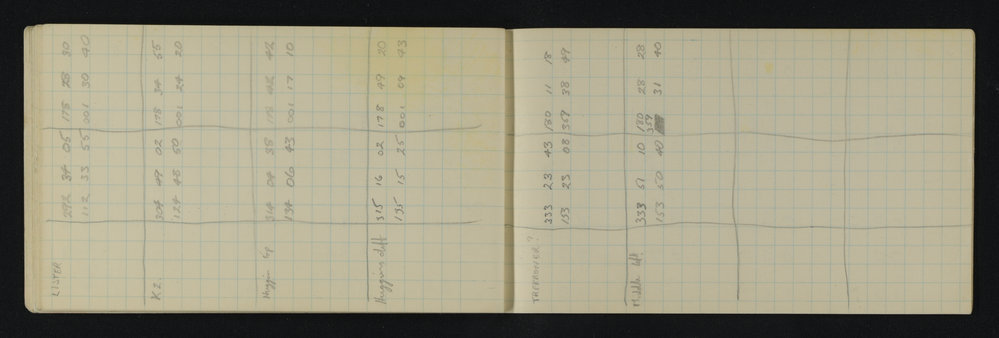 LISTER
292 34 05 178 28 30
112 33 55 001 30 40
K2.
304 49 02 178 34 55
124 48 50 001 24 20
314 04 38 178 42 42
134 06 43 001 17 10
Huggins left
315 16 02 178 49 20
135 15 25 001 09 43
333 23 43 180 11 18
153 23 08 359 38 49
Middle left
333 51 10 180 28 28
153 50 40 359 31 40